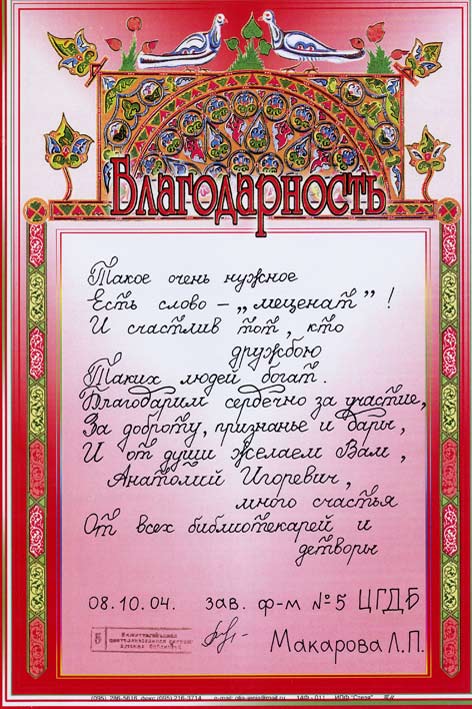 Благодарность
Такое очень нужное
Есть слово – „меценат" !
И счастлив тот, кто
дружбою
Таких людей богат.
Благодарим сердечно за участие,
За доброту, признанье и дары,
И от души желаем Вам,
Анатолий Игоревич,
много счастья
От всех библиотекарей и
детворы
08.10.04. зав. ф-м №5 ЦГДБ
Макарова Л.П.